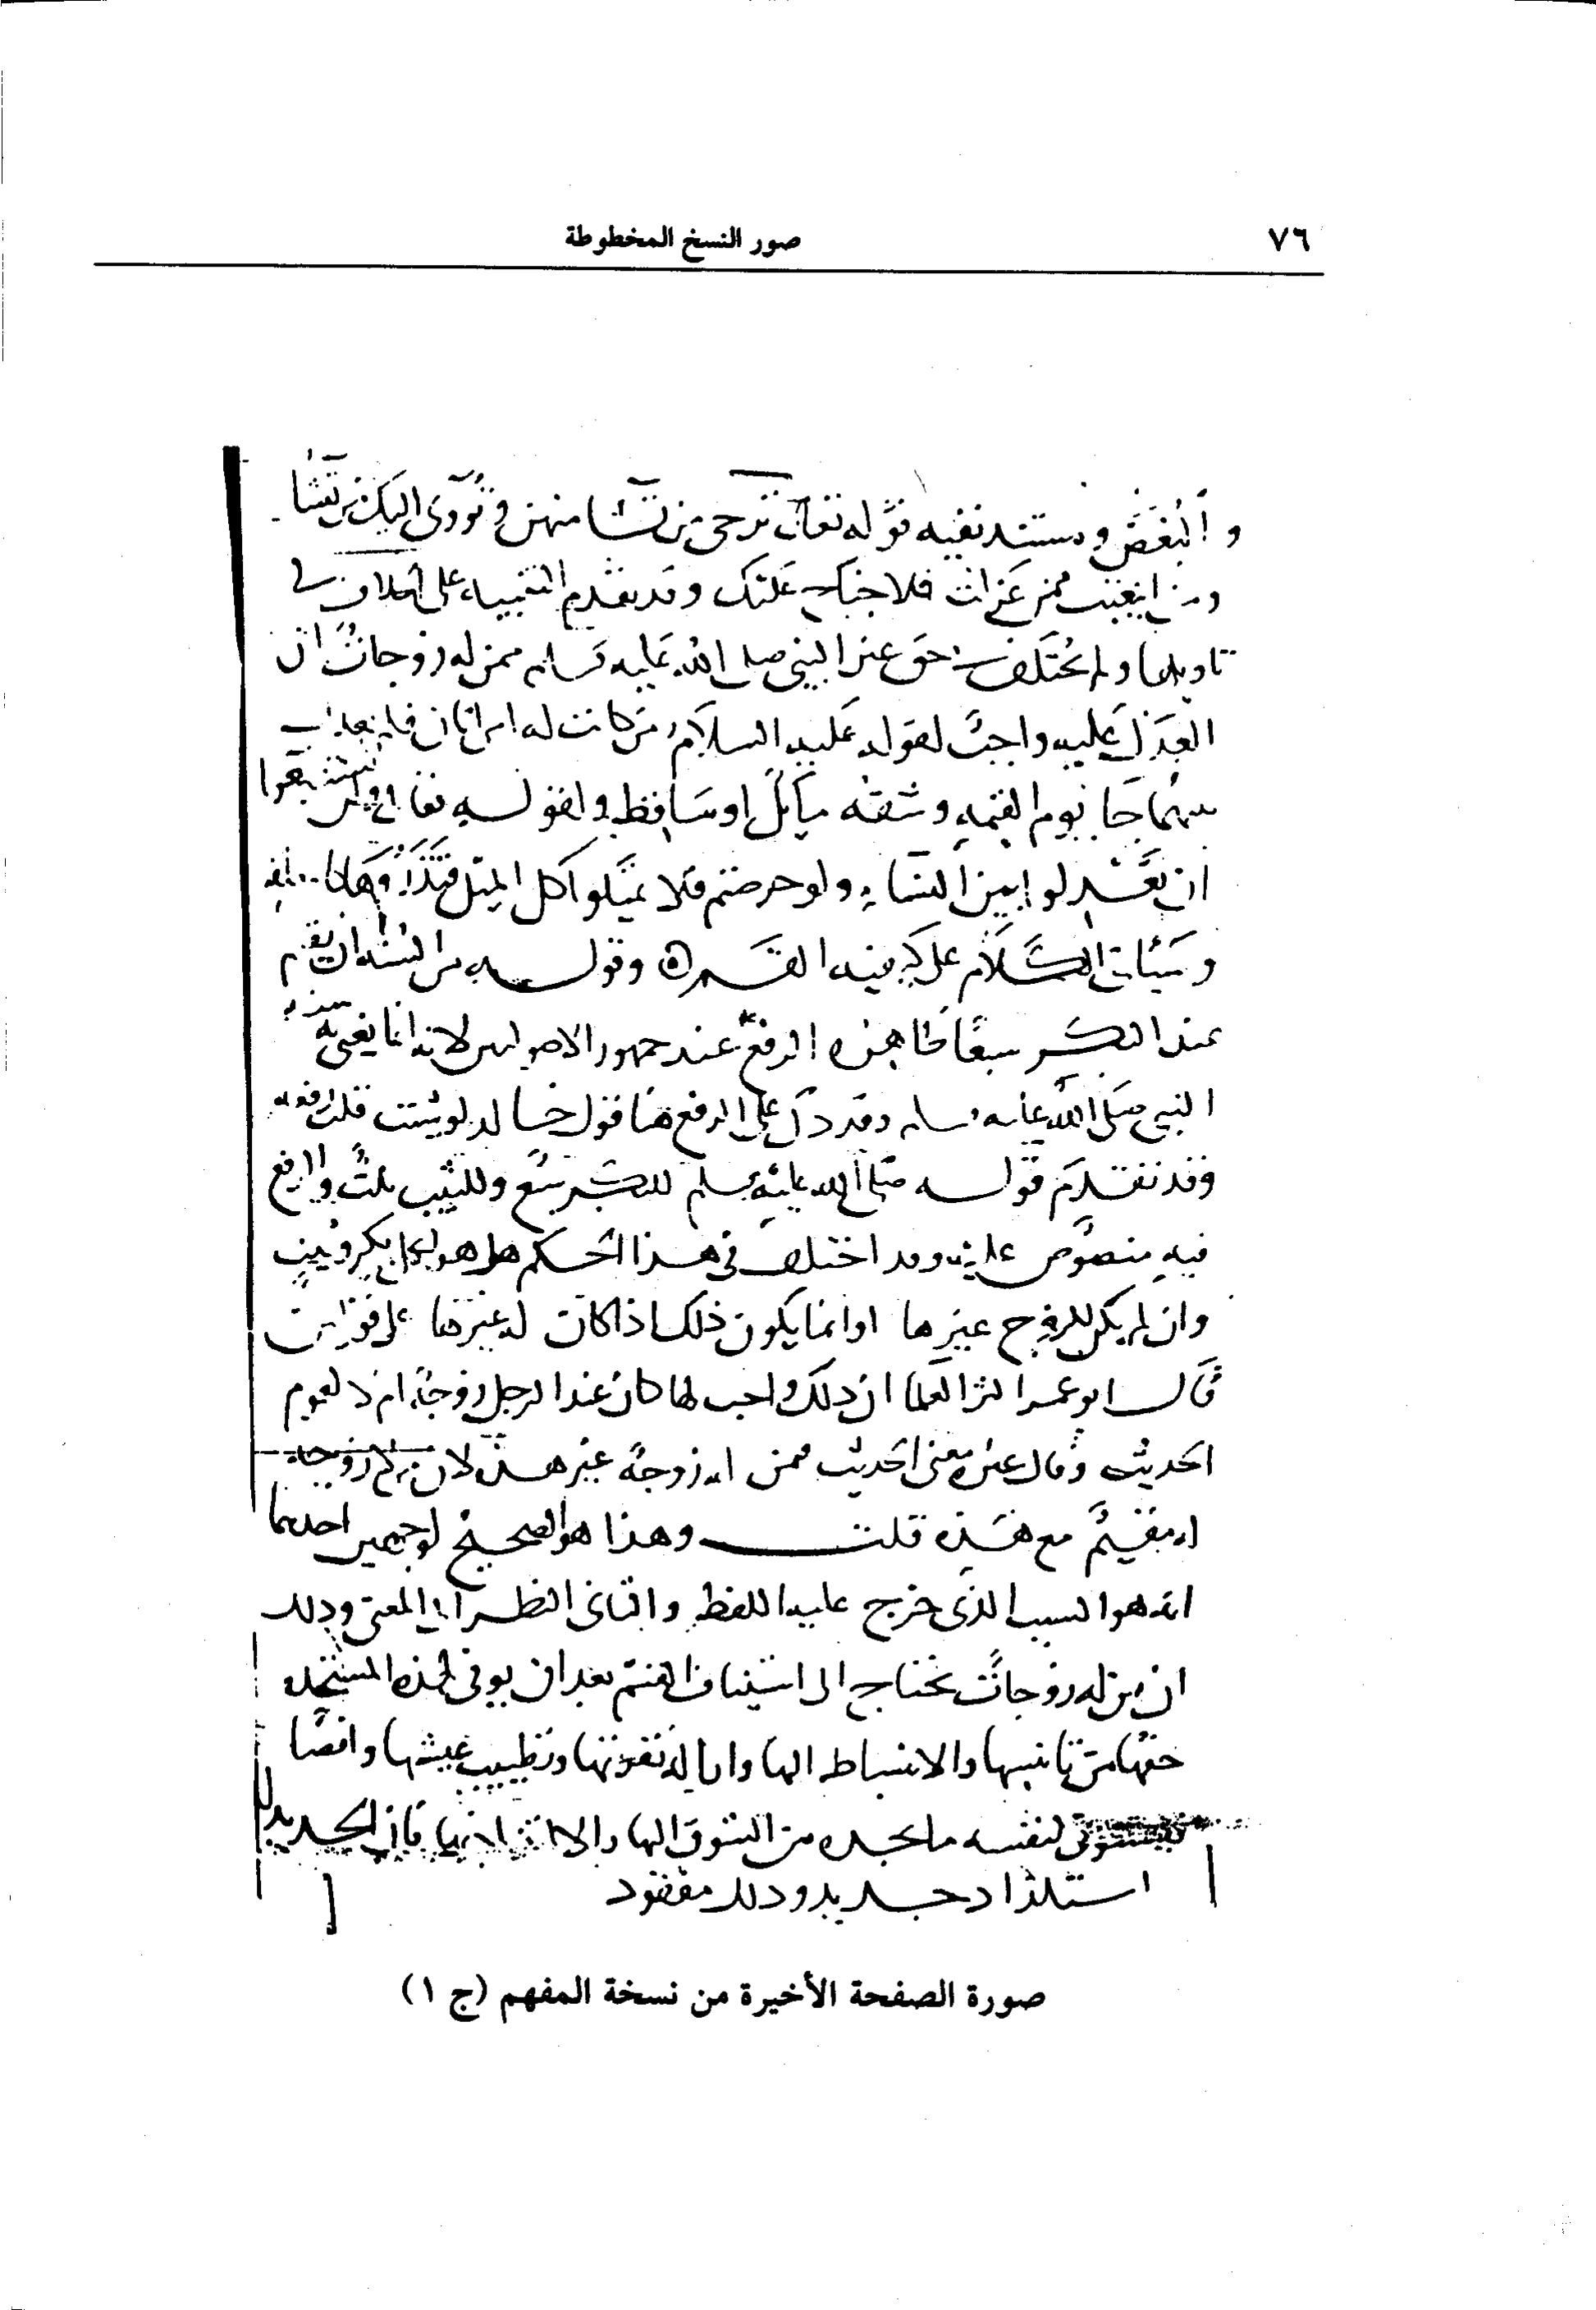 ٧٦ صور النسخ المخطوطة
ومستند نفيه قوله تعالى ترجى من تشا منهن وتؤوى اليك من تشا
ومن ابتغيت ممن عزلت فلا جناح عليك وقد تقدم التنبيه على الخلاف في
تاويلها ولم يختلف في حق غير النبي صلى الله عليه وسلم ممن له زوجات ان
العدل عليه واجب لقوله عليه السلام من كانت له امراتان فلم يعدل
بينهما جا يوم القيمه وشقه مايل او ساقط ولقوله تعالى ولن تستطيعوا
ان تعدلوا بين النساء ولو حرصتم فلا تميلوا كل الميل فتذروها كالمعلقه
وسياتى الكلام على كيفيه القسم ٥ وقوله من السنه ان يقيم
عند البكر سبعا ظاهره الرفع عند جمهور الاصوليين لانه انما يعنى به سنه
النبي صلى الله عليه وسلم وقد دل على الرفع هنا قول خالد لو شيت قلت رفعه
وقد تقدم قوله صلى الله عليه وسلم للبكر سبع وللثيب ثلث والرفع
فيه منصوص عليه وقد اختلف في هذا الحكم هل هو لكل بكر وثيب
وان لم يكن للزوج غيرها او انما يكون ذلك اذا كانت له غيرها على قولين
قال ابو عمر اكثر العلما ان ذلك واجب لها كان عند الرجل زوجة ام لا لعموم
الحديث وقال غيره معنى الحديث فمن له زوجة غير هذه لان من لا زوجة
له مقيم مع هذه قلت وهذا هو الصحيح لوجهين احدهما
انه هو السبب الذى خرج عليه اللفظ والثانى النظر الى المعنى وذلك
ان من له زوجات يحتاج الى استيناف القسم بعد ان يوفى لهذه المستجده
حقها من تانيسها والانبساط اليها وازاله نفرتها وتطييب عيشها وايضا
فيستوفى لنفسه ما يجده من التشوق اليها والالتذاذ بها فان لكل جديد
استلذاذ جديد وذلك مفقود
صورة الصفحة الأخيرة من نسخة المفهم (ج ١)